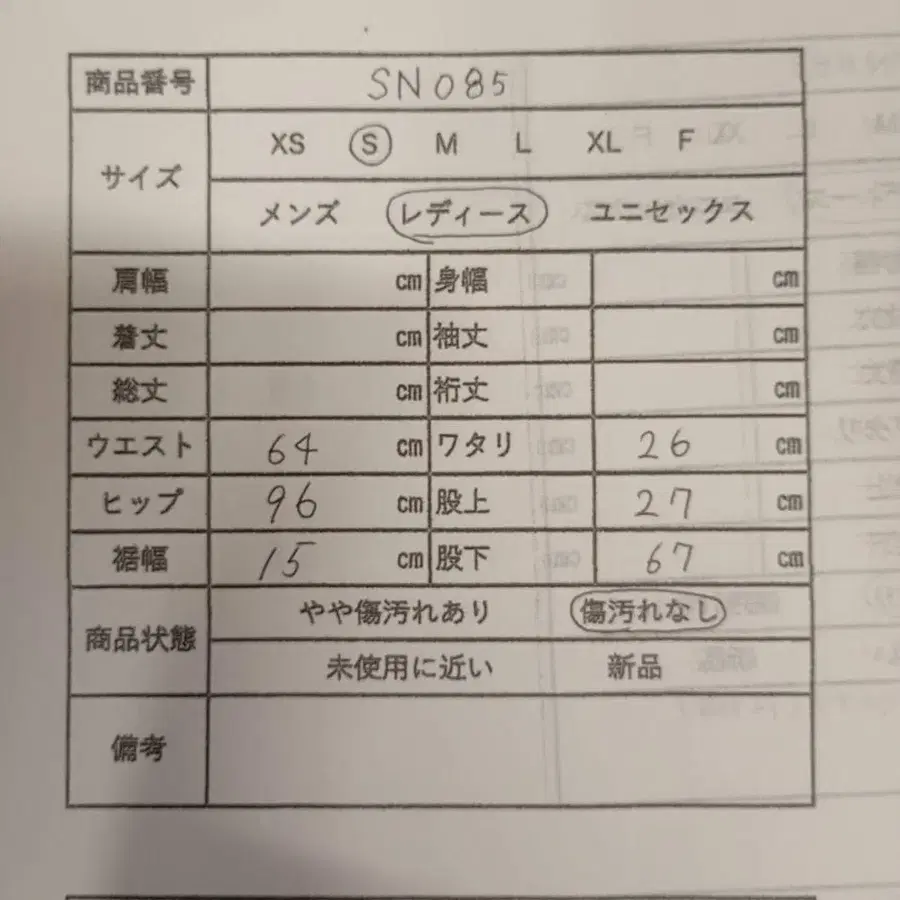 商品番号 SN085
サイズ XS S M L XL F
メンズ レディース ユニセックス
肩幅 cm 身幅 cm
着丈 cm 袖丈 cm
総丈 cm 裄丈 cm
ウエスト 64 cm ワタリ 26 cm
ヒップ 96 cm 股上 27 cm
裾幅 15 cm 股下 67 cm
商品状態 やや傷汚れあり 傷汚れなし
未使用に近い 新品
備考